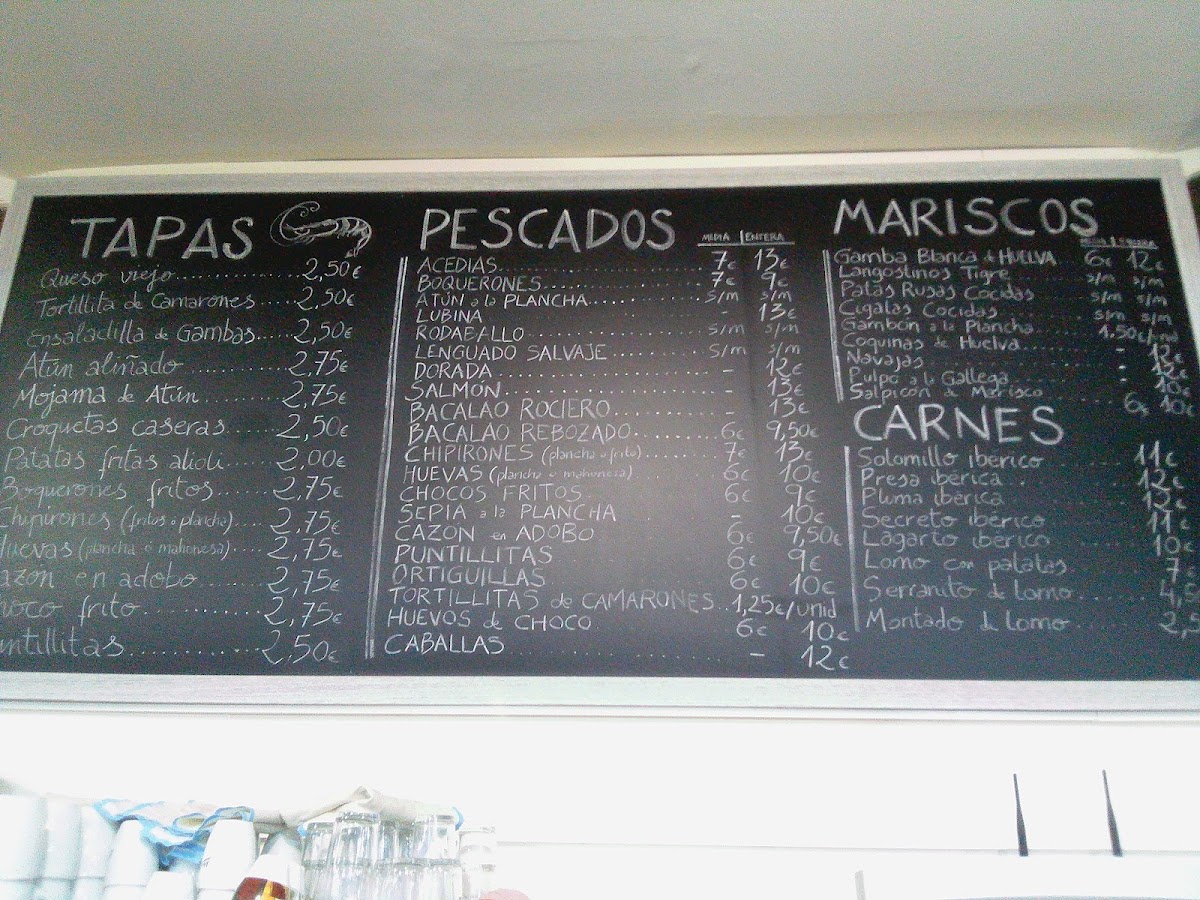 TAPAS
Queso viejo 2,50€
Tortillita de Camarones 2,50€
Ensaladilla de Gambas 2,50€
Atún aliñado 2,75€
Mojama de Atún 2,75€
Croquetas caseras 2,50€
Patatas fritas alioli 2,00€
Boquerones fritos 2,75€
Chipirones (fritos o plancha) 2,75€
Huevas (plancha o mahonesa) 2,75€
azon en adobo 2,75€
hoco frito 2,75€
untillitas 2,50€
PESCADOS
MEDIA ENTERA
ACEDIAS 7€ 13€
BOQUERONES 7€ 9€
ATÚN a la PLANCHA s/m s/m
LUBINA - 13€
RODABALLO s/m s/m
LENGUADO SALVAJE s/m s/m
DORADA - 12€
SALMÓN - 13€
BACALAO ROCIERO - 13€
BACALAO REBOZADO 6€ 9,50€
CHIPIRONES (plancha o frito) 7€ 13€
HUEVAS (plancha o mahonesa) 6€ 10€
CHOCOS FRITOS 6€ 9€
SEPIA a la PLANCHA - 10€
CAZÓN en ADOBO 6€ 9,50€
PUNTILLITAS 6€ 9€
ORTIGUILLAS 6€ 10€
TORTILLITAS de CAMARONES 1,25€/unid
HUEVOS de CHOCO 6€ 10€
CABALLAS - 12€
MARISCOS
MEDIA ENTERA
Gamba Blanca de HUELVA 6€ 12€
Langostinos Tigre s/m s/m
Patas Rusas Cocidas s/m s/m
Cigalas Cocidas s/m s/m
Gambón a la Plancha 1.50€/
Coquinas de Huelva - 12€
Navajas -
Pulpo a la Gallega -
Salpicón de Marisco 6€ 10€
CARNES
Solomillo ibérico 11€
Presa ibérica 12€
Pluma ibérica
Secreto ibérico 11€
Lagarto ibérico 10€
Lomo con patatas 7€
Serranito de lomo 4,5
Montado de lomo 2,5